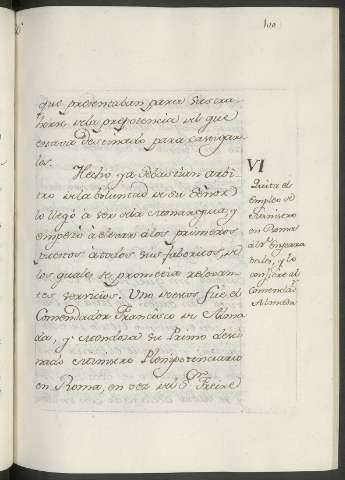 que presentaban para subtra-
herse de la prepotencia del que
estava destinado para castigar-
los.
Hecho ya Sebastian arbi-
tro de la voluntad de su Señor
lo llegó a ser de la Monarquia, y
empezó à elevar à los primeros
puestos à todos sus
los quales se prometia relevan-
tes servicios. Uno de estos fue el
Comendador Francisco de Alma-
da, y Mendoza su Primo desti-
nado Ministro Plenipotenciario
en Roma, en vez del Freire
VI
Quita el
empleo de
Ministro
en Roma
y lo
confiere al
Comendador
Almada